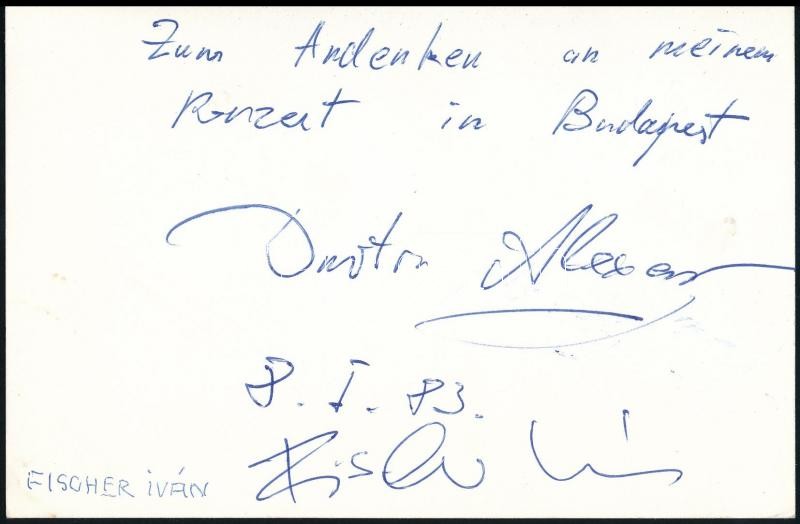 Zum Andenken an meinem
Konzert in Budapest
Dmitri Alexeev
8. I. 83.
Fischer Iván
FISCHER IVÁN